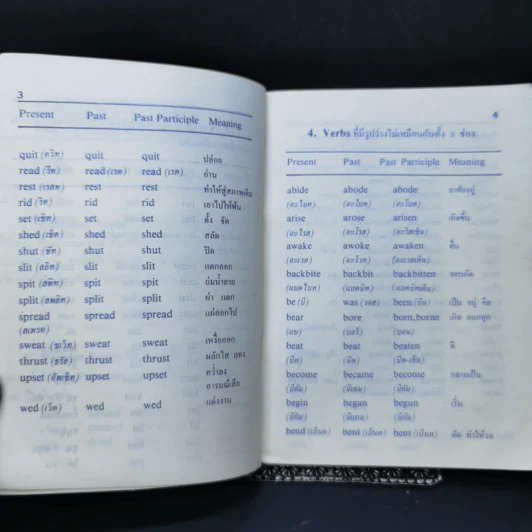 3
Present Past Past Participle Meaning
quit (ควิท) quit quit ปล่อย
read (รีด) read (เรด) read (เรด) อ่าน
rest (เรสท) rest rest ทำให้สู่สภาพเดิม
rid (ริด) rid rid เอาไปให้พ้น
set (เซ็ท) set set ตั้ง จัด
shed (เช็ด) shed shed สลัด
shut (ชัท) shut shut ปิด
slit (สลิท) slit slit แตกออก
spit (สพิท) spit spit ถ่มน้ำลาย
split (สพลิท) split split ผ่า แตก
spread spread spread แผ่ออกไป
(สเพรด)
sweat (ซเว็ท) sweat sweat เหงื่อออก
thrust (ธรัส) thrust thrust ผลักใส แทง
upset (อัพเซ็ท) upset upset คว่ำลง
อารมณ์เสีย
wed (เว็ด) wed wed แต่งงาน
4
4. Verbs ที่มีรูปร่างไม่เหมือนกันทั้ง 3 ช่อง
Present Past Past Participle Meaning
abide abode abode อาศัยอยู่
(อะไบด) (อะโบด) (อะโบด)
arise arose arisen เกิดขึ้น
(อะไรส) (อะโรส)
awake awoke awaken ตื่น
(อะเวค) (อะโวค) (อะเวคเค็น)
backbite backbit backbitten ลอบกัด
(แบคไบท) (แบคบิท) (แบคบิทเท็น)
be (บี) was (วอส) been (บีน) เป็น อยู่ คือ
bear bore born,borne เกิด ออกลูก
(แบ) (บอร์) (บอน)
beat beat beaten ตี
(บีท) (บีท) (บีทเทิน)
become became become กลายเป็น
(บิคัม) (บิเคม) (บิคัม)
begin began begun เริ่ม
(บิกิน) (บิแกน) (บิกัน)
bend (เบ็นด) bent (เบ็นท) bent (เบ็นท) ดัด ทำให้งอ